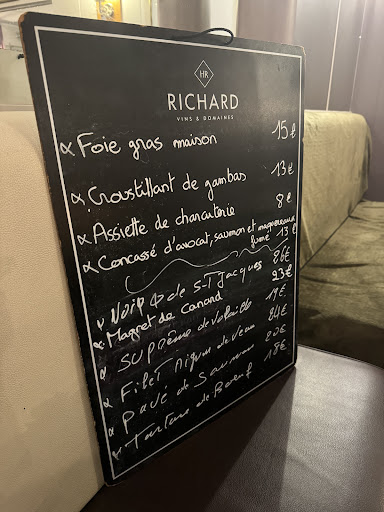 HR
RICHARD
VINS & DOMAINES
Foie gras maison 15€
Croustillant de gambas 13€
Assiette de charcuterie 8€
Concassé d'avocat, saumon et maquereaux
fumé 13€
Noix de S-T Jacques 26€
Magret de Canard 23€
Suprême de volaille 19€
Filet Mignon de Veau 24€
Pavé de Saumon 20€
Tartare de Boeuf 18€